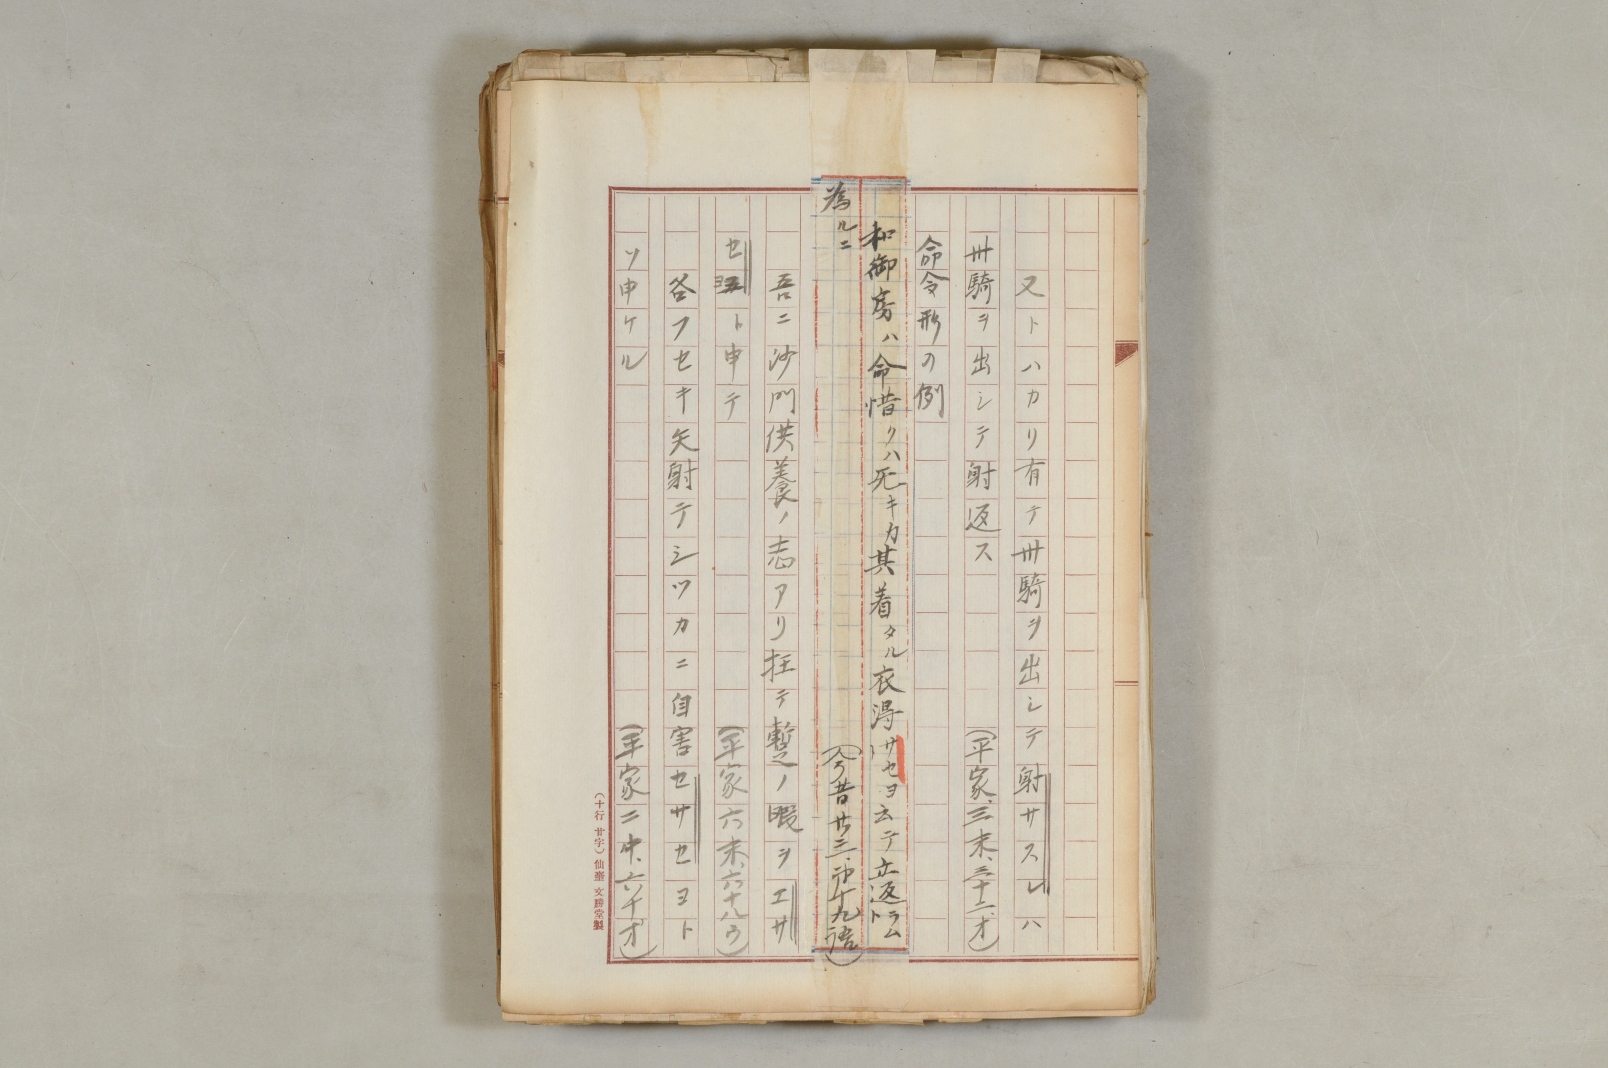 又トハカリ有テ卅騎ヲ出シテ射サスレハ
卅騎ヲ出シテ射返ス
(平家、三末、三十二、オ)
命令形の例
和御房ハ命惜クハ死キカ其着タル衣得サセヨ云テ立返ラムト
為ルニ
(今昔廿三、第十九語)
吾ニ沙門供養ノ志アリ抂テ暫ノ暇ヲエサ
セヨト申テ
(平家六末、六十八ウ)
各フセキ矢射テシツカニ自害セサセヨト
ソ申ケル
(平家二中、六十オ)
(十行 廿字) 仙臺 文勝堂製